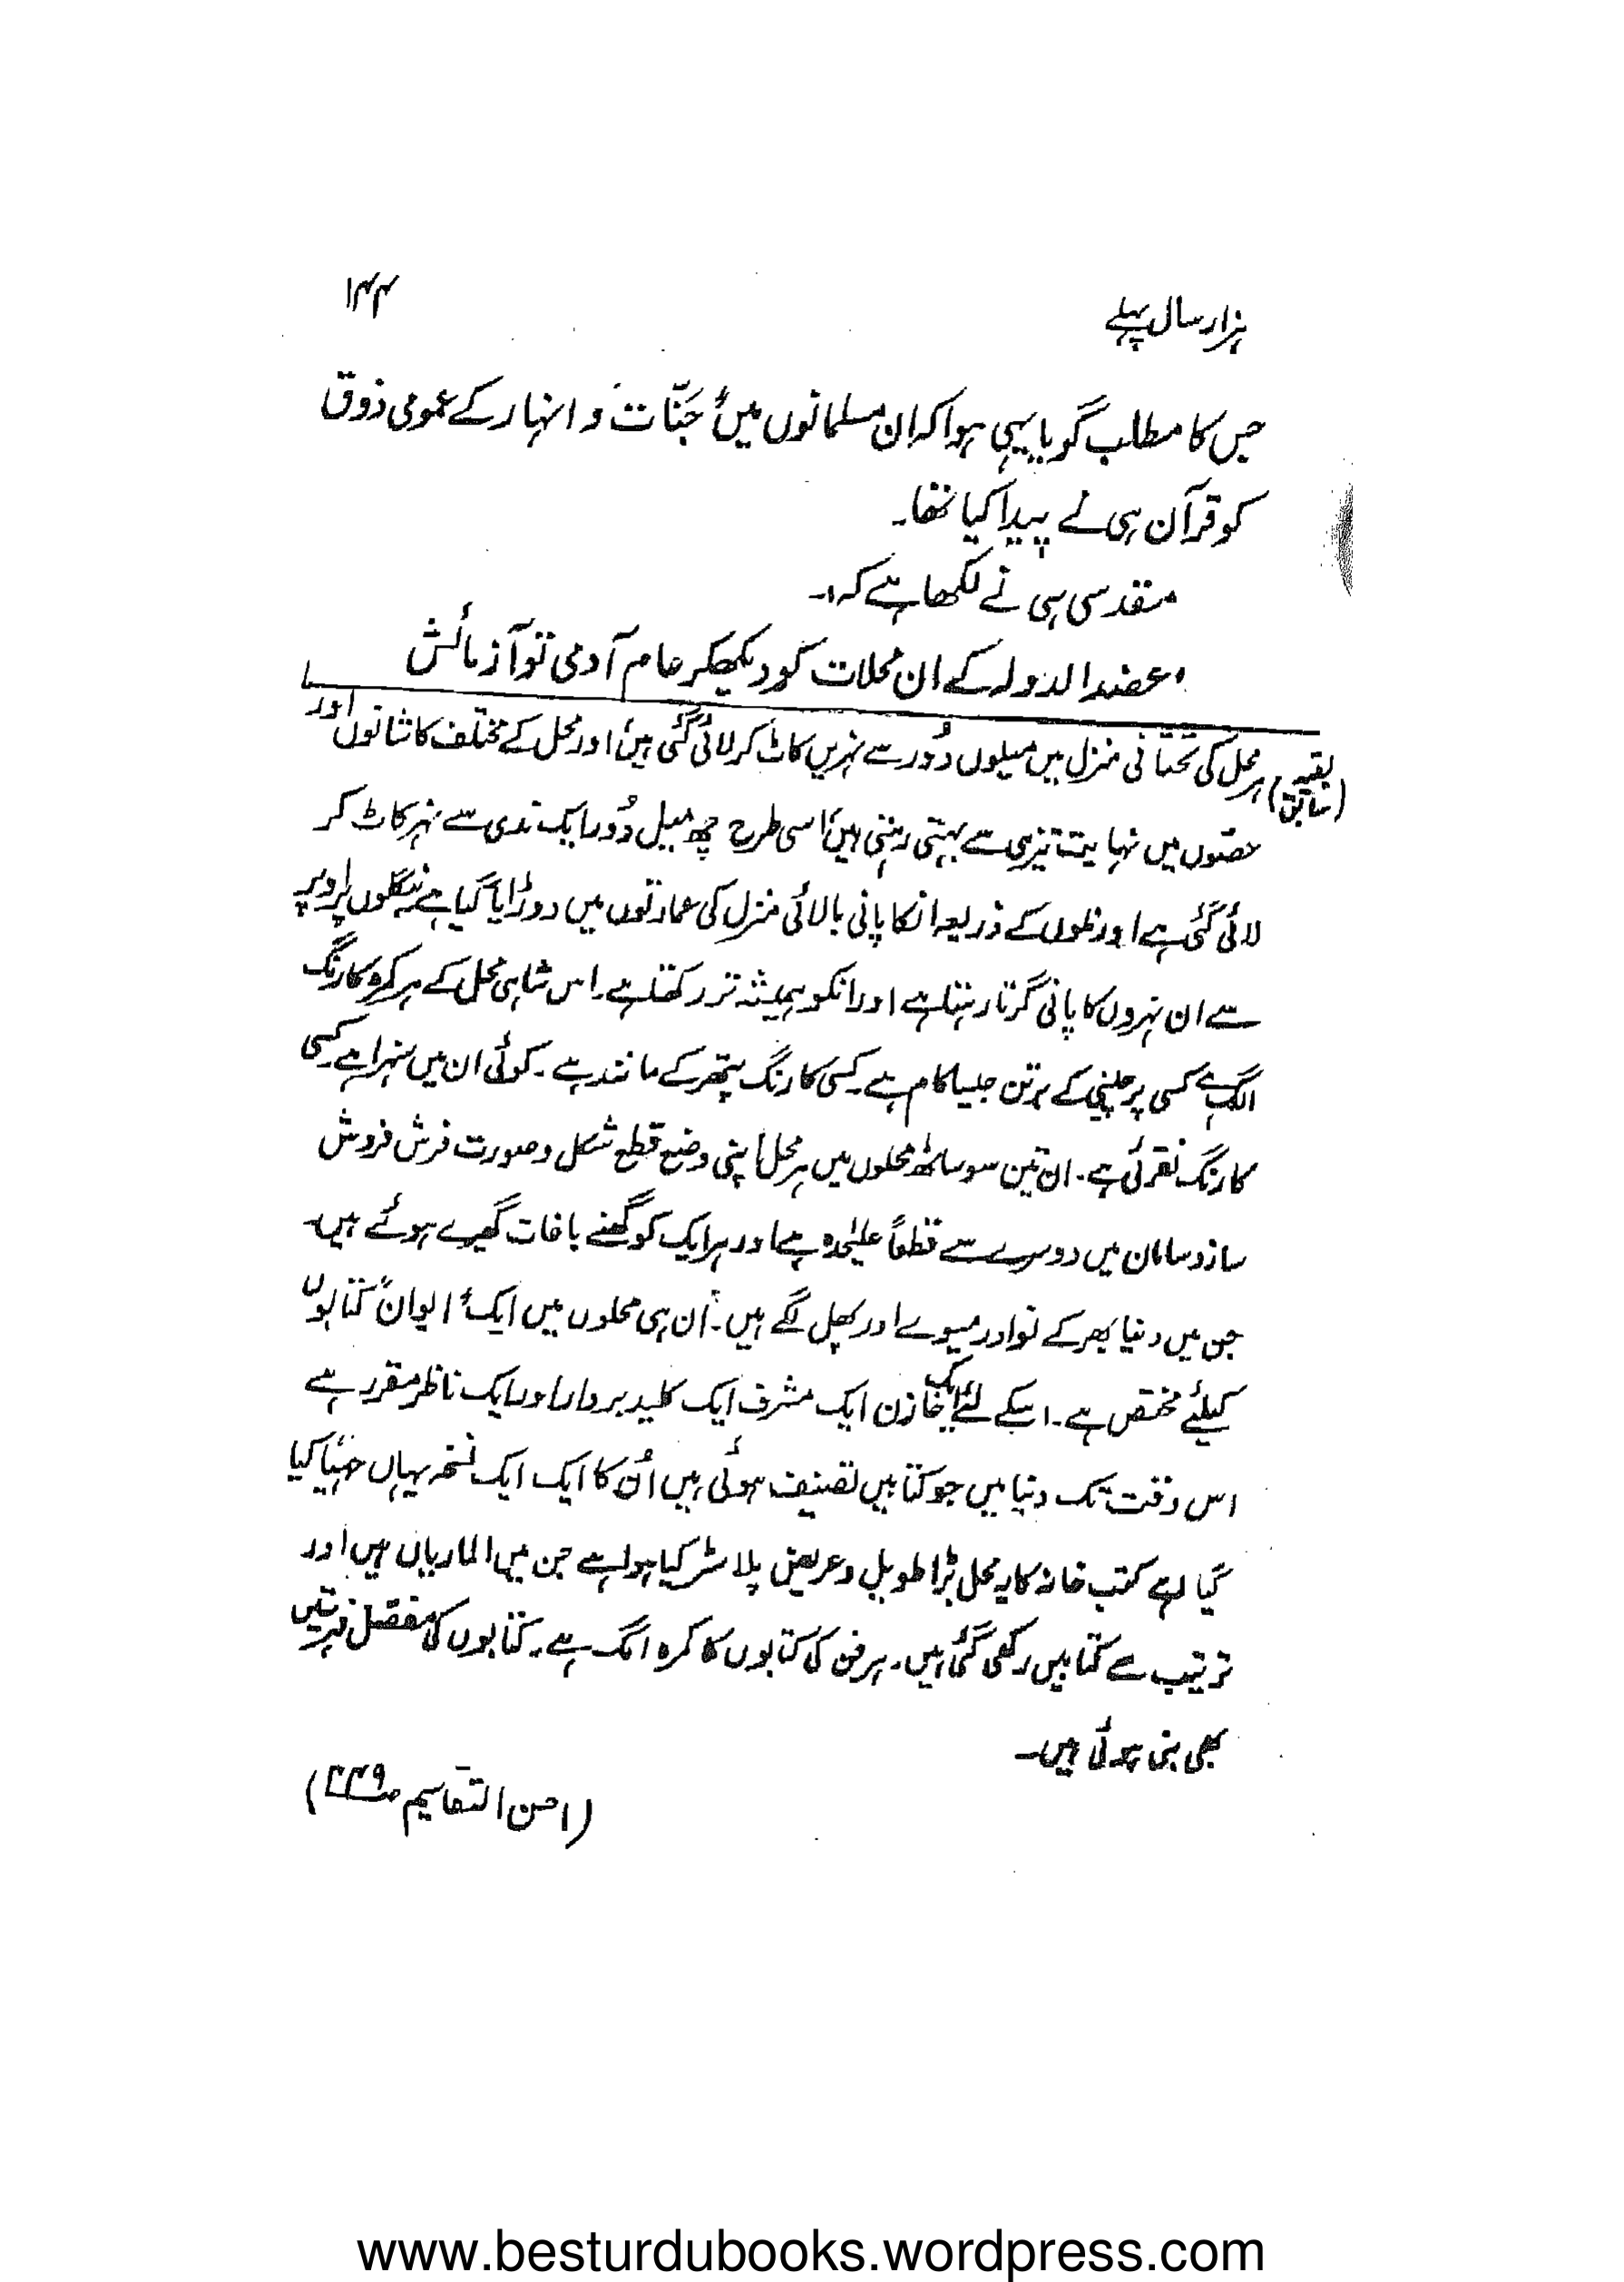 ہزار سال پہلے
۱۴۴
جس کا مطلب گویا یہی ہوا کہ ان مسلمانوں میں "جَنّات و انہار کے عمومی ذوق
کو قرآن ہی نے پیدا کیا تھا۔
مقدسی ہی نے لکھا ہے کہ:۔
"عضد الدولہ کے ان محلات کو دیکھکر عام آدمی تو آزمائش
(بقیہ سابق) ہر محل کی تحتانی منزل میں میلوں دُور سے نہریں کاٹ کر لائی گئی ہیں، اور محل کے مختلف کاشانوں اور
حصّوں میں نہایت تیزی سے بہتی رہتی ہیں، اسی طرح چھ میل دُور ایک ندی سے نہر کاٹ کر
لائی گئی ہے اور نلوں کے ذریعہ انکا پانی بالائی منزل کی عمارتوں میں دوڑایا گیا ہے بنگلوں پر اوپر
سے ان نہروں کا پانی گرتا رہتا ہے اور انکو ہمیشہ تر رکھتا ہے۔ اس شاہی محل کے ہر کمرہ کا رنگ
الگ ہے کسی پر چینی کے برتن جیسا کام ہے۔ کسی کا رنگ پتھر کے مانند ہے۔ کوئی ان میں سنہرا ہے کسی
کا رنگ نقرئی ہے۔ ان تین سو ساٹھ محلوں میں ہر محل اپنی وضع قطع شکل و صورت فرش فروش
ساز و سامان میں دوسرے سے قطعاً علیٰحدہ ہے اور ہر ایک کو گھنے باغات گھیرے ہوئے ہیں۔
جن میں دنیا بھر کے نوادر میوے اور پھل لگے ہیں۔ اُن ہی محلوں میں ایک "ایوان" کتابوں
کیلئے مختص ہے۔ اسکے لئے ایک خازن ایک مشرف ایک کلید بردار اور ایک ناظر مقرر ہے
اس وقت تک دنیا میں جو کتابیں تصنیف ہوئی ہیں اُن کا ایک ایک نسخہ یہاں مہیّا کیا
گیا ہے کتب خانہ کا یہ محل بڑا طویل و عریض پلاسٹر کیا ہوا ہے جن میں الماریاں ہیں اور
ترتیب سے کتابیں رکھی گئی ہیں۔ ہر فن کی کتابوں کا کمرہ الگ ہے۔ کتابوں کی مفصّل فہرستیں
بھی بنی ہوئی ہیں۔
(احسن التقاسیم ص۴۴۹)
www.besturdubooks.wordpress.com